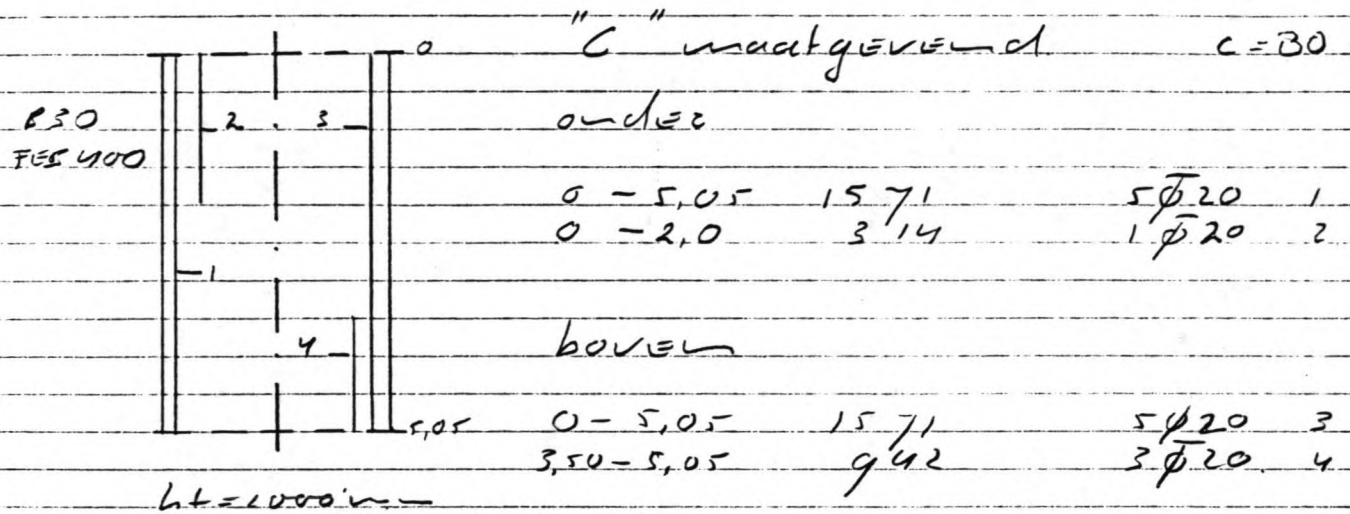 "C" maatgevend c=30
0
B30
FEB 400
2 3
onder
0 - 5,05 1571 5ø20 1
0 - 2,0 314 1ø20 2
1
4
boven
5,05
0 - 5,05 1571 5ø20 3
3,50 - 5,05 942 3ø20 4